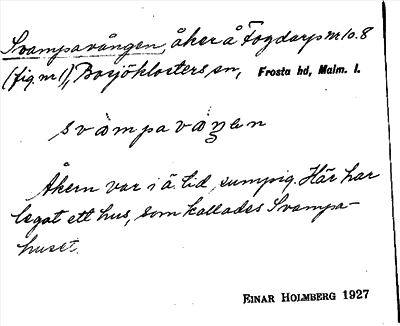 Svampavången, åker å Fogdarp nr 10.8
(fig. nr 1), Bosjöklosters sn, Frosta hd, Malm. l.
svampavaŋən
Åkern var i ä. tid sumpig. Här har
legat ett hus, som kallades Svampa-
huset.
EINAR HOLMBERG 1927